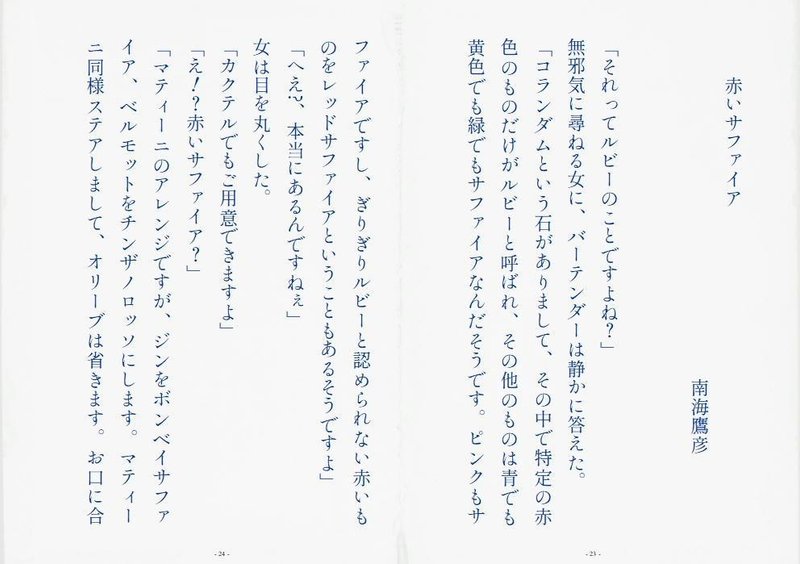 赤いサファイア
南海鷹彦
「それってルビーのことですよね？」
無邪気に尋ねる女に、バーテンダーは静かに答えた。
「コランダムという石がありまして、その中で特定の赤
色のものだけがルビーと呼ばれ、その他のものは青でも
黄色でも緑でもサファイアなんだそうです。ピンクもサ
- 23 -
ファイアですし、ぎりぎりルビーと認められない赤いも
のをレッドサファイアということもあるそうですよ」
「へえ?、本当にあるんですねぇ」
女は目を丸くした。
「カクテルでもご用意できますよ」
「え！？赤いサファイア？」
「マティーニのアレンジですが、ジンをボンベイサファ
イア、ベルモットをチンザノロッソにします。マティー
ニ同様ステアしまして、オリーブは省きます。お口に合
- 24 -